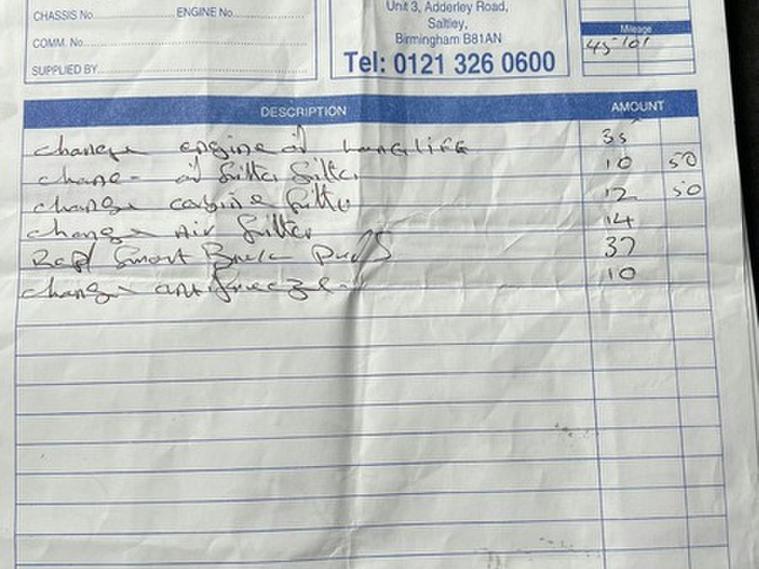 CHASSIS No. ENGINE No.
COMM. No.
SUPPLIED BY
Unit 3, Adderley Road,
Saltley,
Birmingham B81AN
Tel: 0121 326 0600
Mileage
45101
DESCRIPTION AMOUNT
change engine oil Longlife 35
change oil filter 10 50
change cabine filter 12 50
change Air filter 14
Repl Front Brake Pads 37
change antifreeze 10